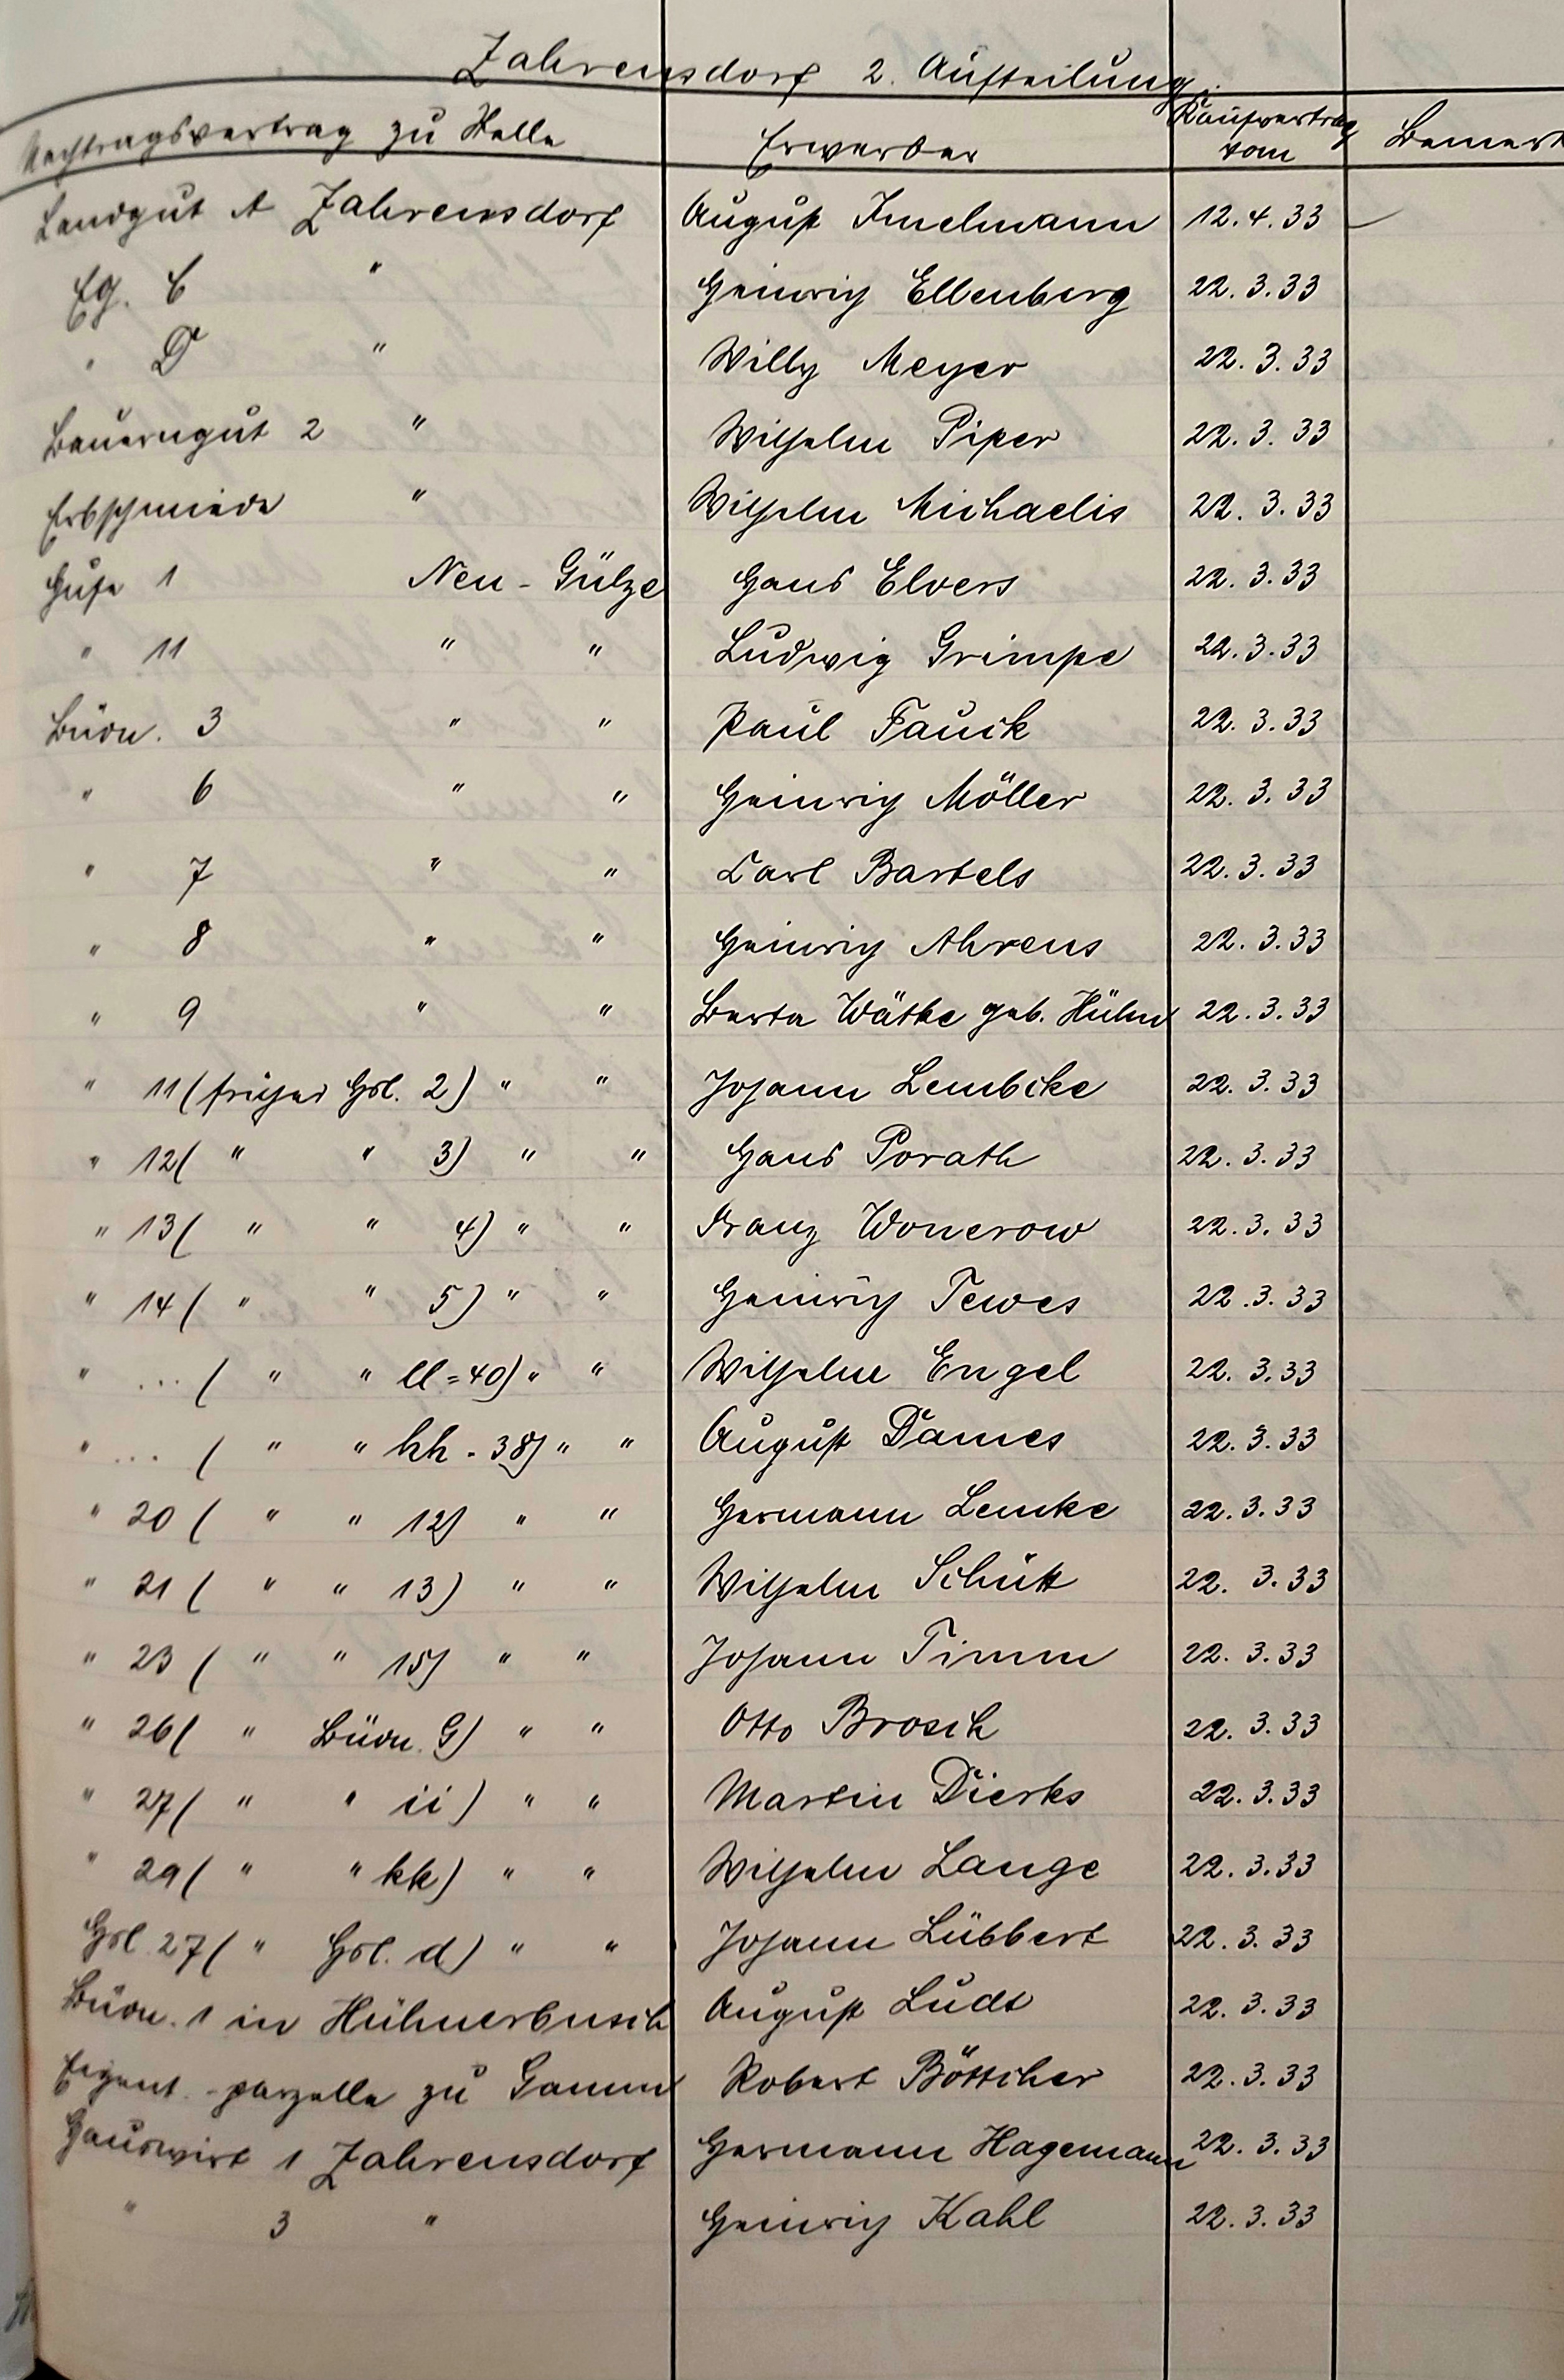 Zahrensdorf 2. Aufteilung.
Nachtragsvertrag zu Stelle Erwerber Kaufvertrag vom Bemerk
Landgut A Zahrensdorf August Imelmann 12.4.33 —
Eg. C " Heinrich Ellenberg 22.3.33
" D " Willy Meyer 22.3.33
Bauerngut 2 " Wilhelm Piper 22.3.33
Erbschmiede " Wilhelm Michaelis 22.3.33
Hufe 1 Neu-Gülze Hans Elvers 22.3.33
" 11 " " Ludwig Grimpe 22.3.33
Büdn. 3 " " Paul Fauck 22.3.33
" 6 " " Heinrich Möller 22.3.33
" 7 " " Carl Bartels 22.3.33
" 8 " " Heinrich Ahrens 22.3.33
" 9 " " Berta Wätke geb. Hühn 22.3.33
" 11 (früher Hsl. 2) " " Johann Lembcke 22.3.33
" 12 ( " " 3) " " Hans Porath 22.3.33
" 13 ( " " 4) " " Franz Wonerow 22.3.33
" 14 ( " " 5) " " Heinrich Tewes 22.3.33
" ... ( " " ll=40) " " Wilhelm Engel 22.3.33
" ... ( " " hh-38) " " August Dames 22.3.33
" 20 ( " " 12) " " Hermann Lemke 22.3.33
" 21 ( " " 13) " " Wilhelm Schütt 22.3.33
" 23 ( " " 15) " " Johann Timm 22.3.33
" 26 ( " Büdn. G) " " Otto Brosch 22.3.33
" 27 ( " " ii) " " Martin Dierks 22.3.33
" 29 ( " " kk) " " Wilhelm Lange 22.3.33
Hsl. 27 ( " Hsl. d) " " Johann Lübbert 22.3.33
Büdn. 1 in Hühnerbusch August Ludt 22.3.33
Eigent.-parzelle zu Gamm Robert Böttcher 22.3.33
Hauswirt 1 Zahrensdorf Hermann Hagemann 22.3.33
" 3 " Heinrich Kahl 22.3.33